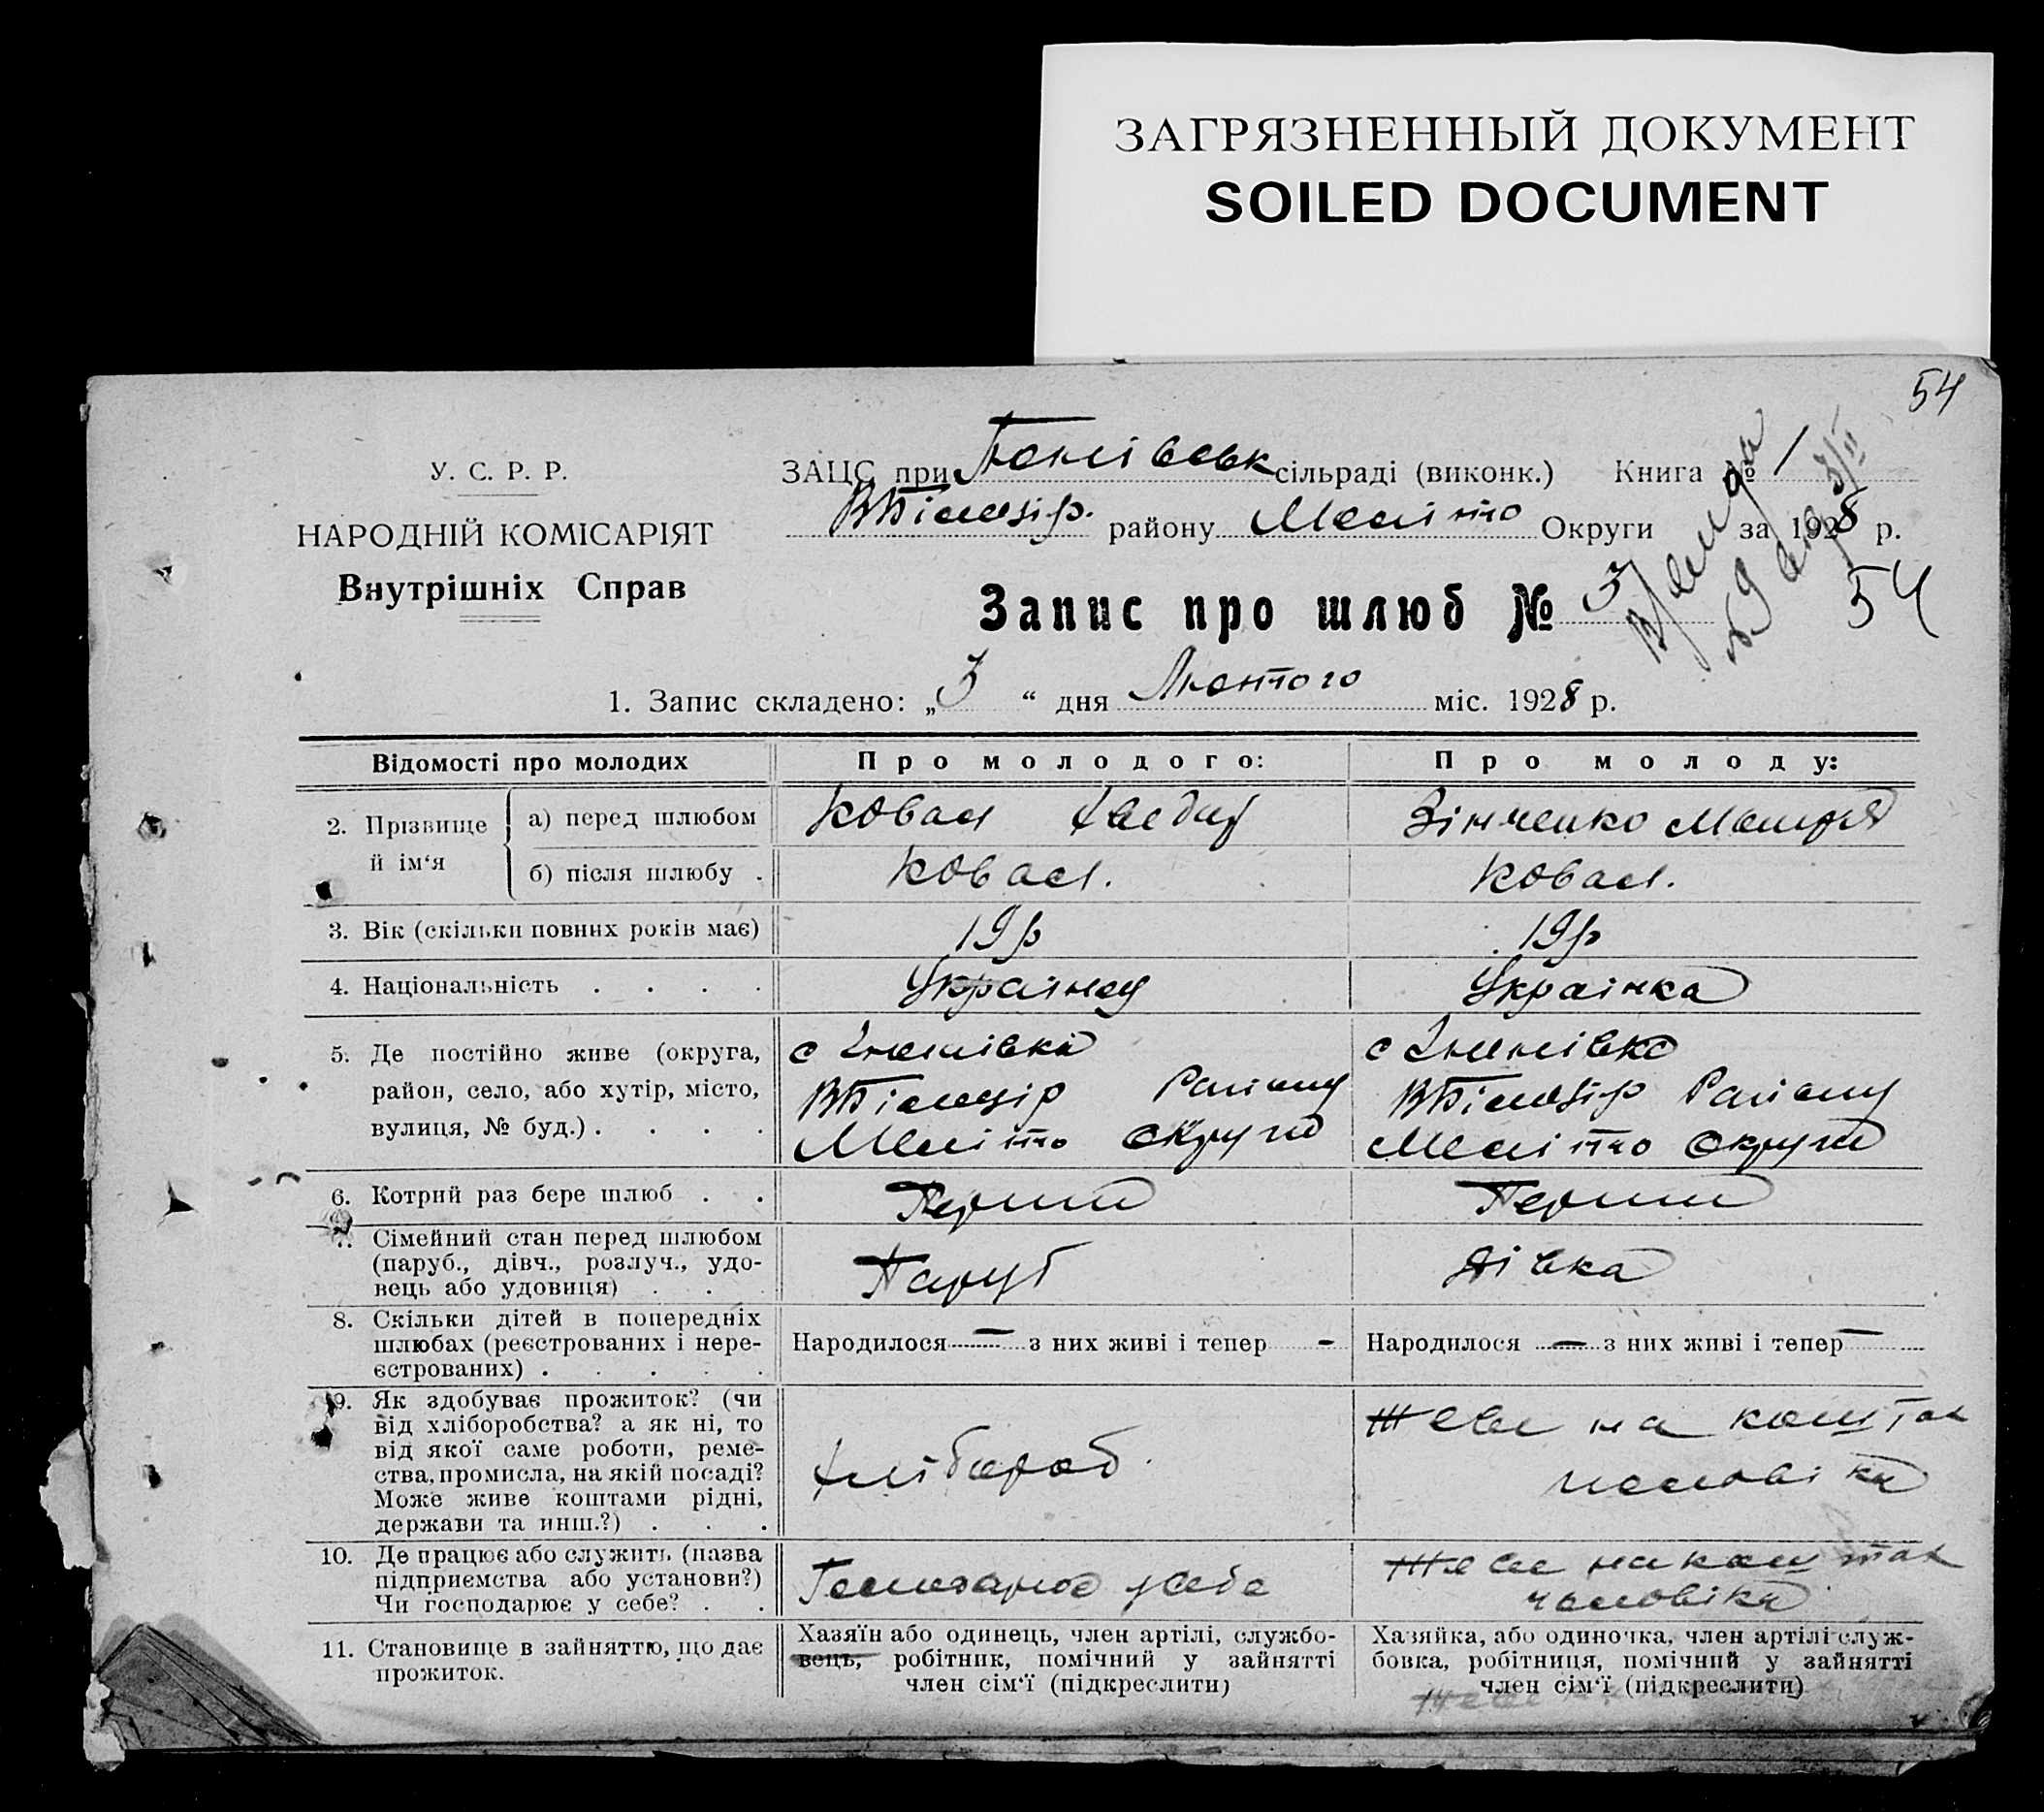 ЗАГРЯЗНЕННЫЙ ДОКУМЕНТ
SOILED DOCUMENT
54
У. С. Р. Р.
НАРОДНІЙ КОМІСАРІЯТ
Внутрішніх Справ
ЗАЦС при сільраді (виконк.) Книга № 1
району Меліто Округи за 1928 р.
Запис про шлюб № 3
54
1. Запис складено: „3“ дня Лютого міс. 1928 р.
Відомості про молодих
Про молодого:
Про молоду:
2. Прізвище й ім‘я
а) перед шлюбом
Коваль
Зінченко Марія
б) після шлюбу .
Коваль.
Коваль.
3. Вік (скільки повних років має)
19 р
19 р
4. Національність . . . .
Українец
Українка
5. Де постійно живе (округа,
район, село, або хутір, місто,
вулиця, № буд.) . . . .
с
Району
Меліто Округи
с
Району
Меліто Округи
6. Котрий раз бере шлюб . .
Перший
Перший
7. Сімейний стан перед шлюбом
(паруб., дівч., розлуч., удо-
вець або удовиця) . . .
Паруб
Дівка
8. Скільки дітей в попередніх
шлюбах (реєстрованих і нере-
єстрованих) . . . . .
Народилося — з них живі і тепер -
Народилося — з них живі і тепер —
9. Як здобуває прожиток? (чи
від хліборобства? а як ні, то
від якої саме роботи, реме-
ства, промисла, на якій посаді?
Може живе коштами рідні,
держави та инш.?) . . .
Хлібороб.
Живе на коштах
чоловіка
10. Де працює або служить (назва
підприємства або установи?)
Чи господарює у себе? . .
Господарює у себе
Живе на коштах
чоловіка
11. Становище в зайняттю, що дає
прожиток.
Хазяїн або одинець, член артілі, службо-
вець, робітник, помічний у зайнятті
член сім‘ї (підкреслити)
Хазяйка, або одиночка, член артілі служ-
бовка, робітниця, помічний у зайнятті
член сім‘ї (підкреслити)